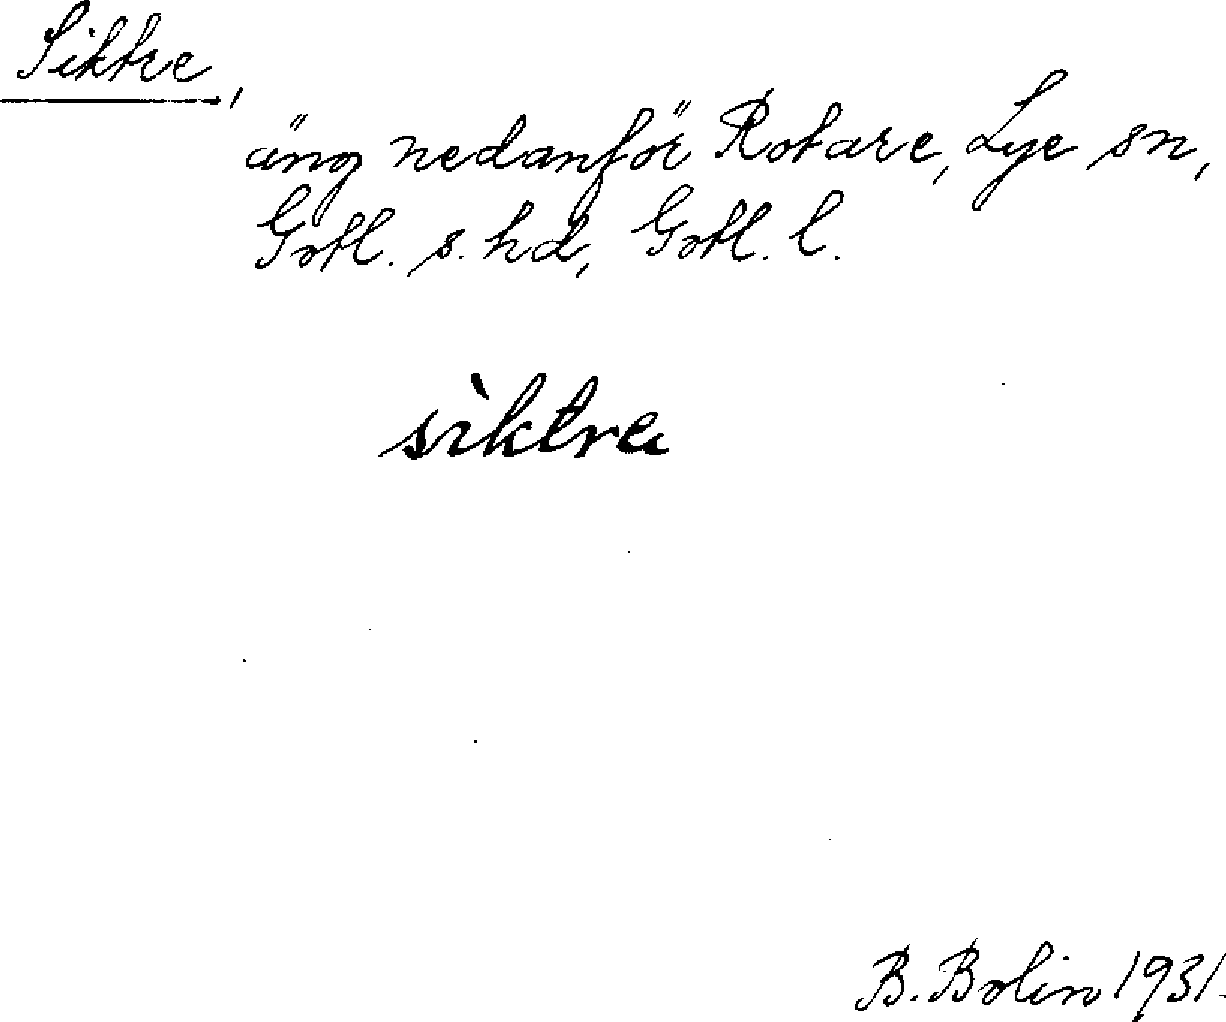 Siktre,
äng nedanför Rotare, Lye sn,
Gotl. s. hd, Gotl. l.
sìktre
B. Bolin 1931.